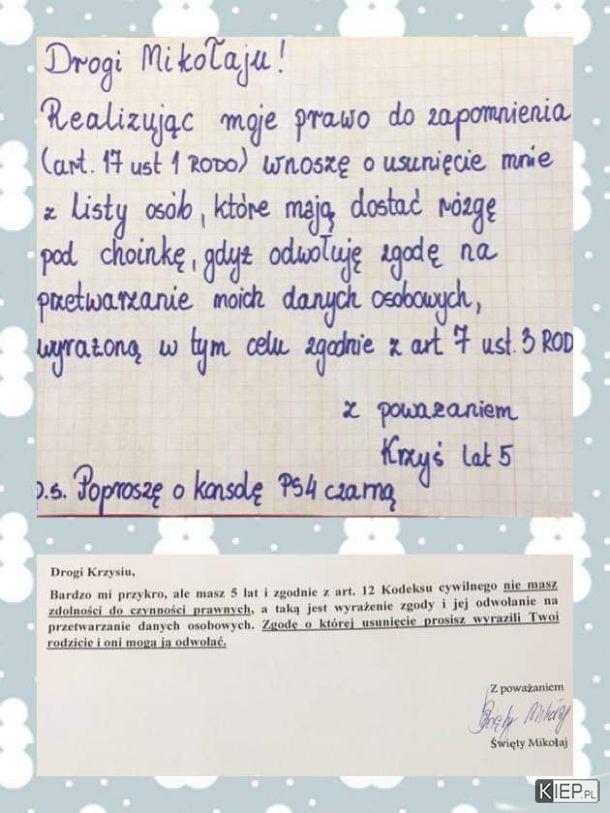 Drogi Mikołaju!
Realizując moje prawo do zapomnienia
(art. 17 ust 1 RODO) wnoszę o usunięcie mnie
z listy osób, które mają dostać rózgę
pod choinkę, gdyż odwołuję zgodę na
przetwarzanie moich danych osobowych,
wyrażoną w tym celu zgodnie z art 7 ust. 3 ROD
z poważaniem
Krzyś lat 5
p.s. Poproszę o konsolę PS4 czarną
Drogi Krzysiu,
Bardzo mi przykro, ale masz 5 lat i zgodnie z art. 12 Kodeksu cywilnego nie masz
zdolności do czynności prawnych, a taką jest wyrażenie zgody i jej odwołanie na
przetwarzanie danych osobowych. Zgodę o której usunięcie prosisz wyrazili Twoi
rodzicie i oni mogą ją odwołać.
Z poważaniem
Święty Mikołaj
Święty Mikołaj
KIEP.PL